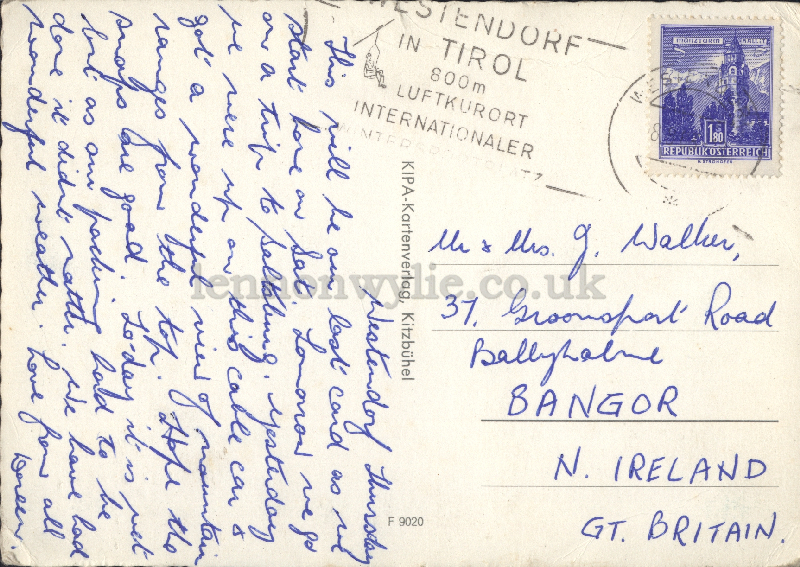 Westendorf, Thursday
This will be our last card as we
start home on Sat. Tomorrow we go
on a trip to Salzburg. Yesterday
we were up on this cable car &
got a wonderful view of mountain
ranges from the top. Hope the
snaps are good. Today it is wet
but as our packing had to be
done it didn't matter. We have had
wonderful weather. Love from all
Doreen.
WESTENDORF
IN TIROL
800m
LUFTKURORT
INTERNATIONALER
WINTERSPORTPLATZ
1.80
REPUBLIK ÖSTERREICH
KIPA-Kartenverlag, Kitzbühel
F 9020
Mr & Mrs. J. Walker,
37, Groomsport Road
Ballyholme
BANGOR
N. IRELAND
GT. BRITAIN.
lennonwylie.co.uk